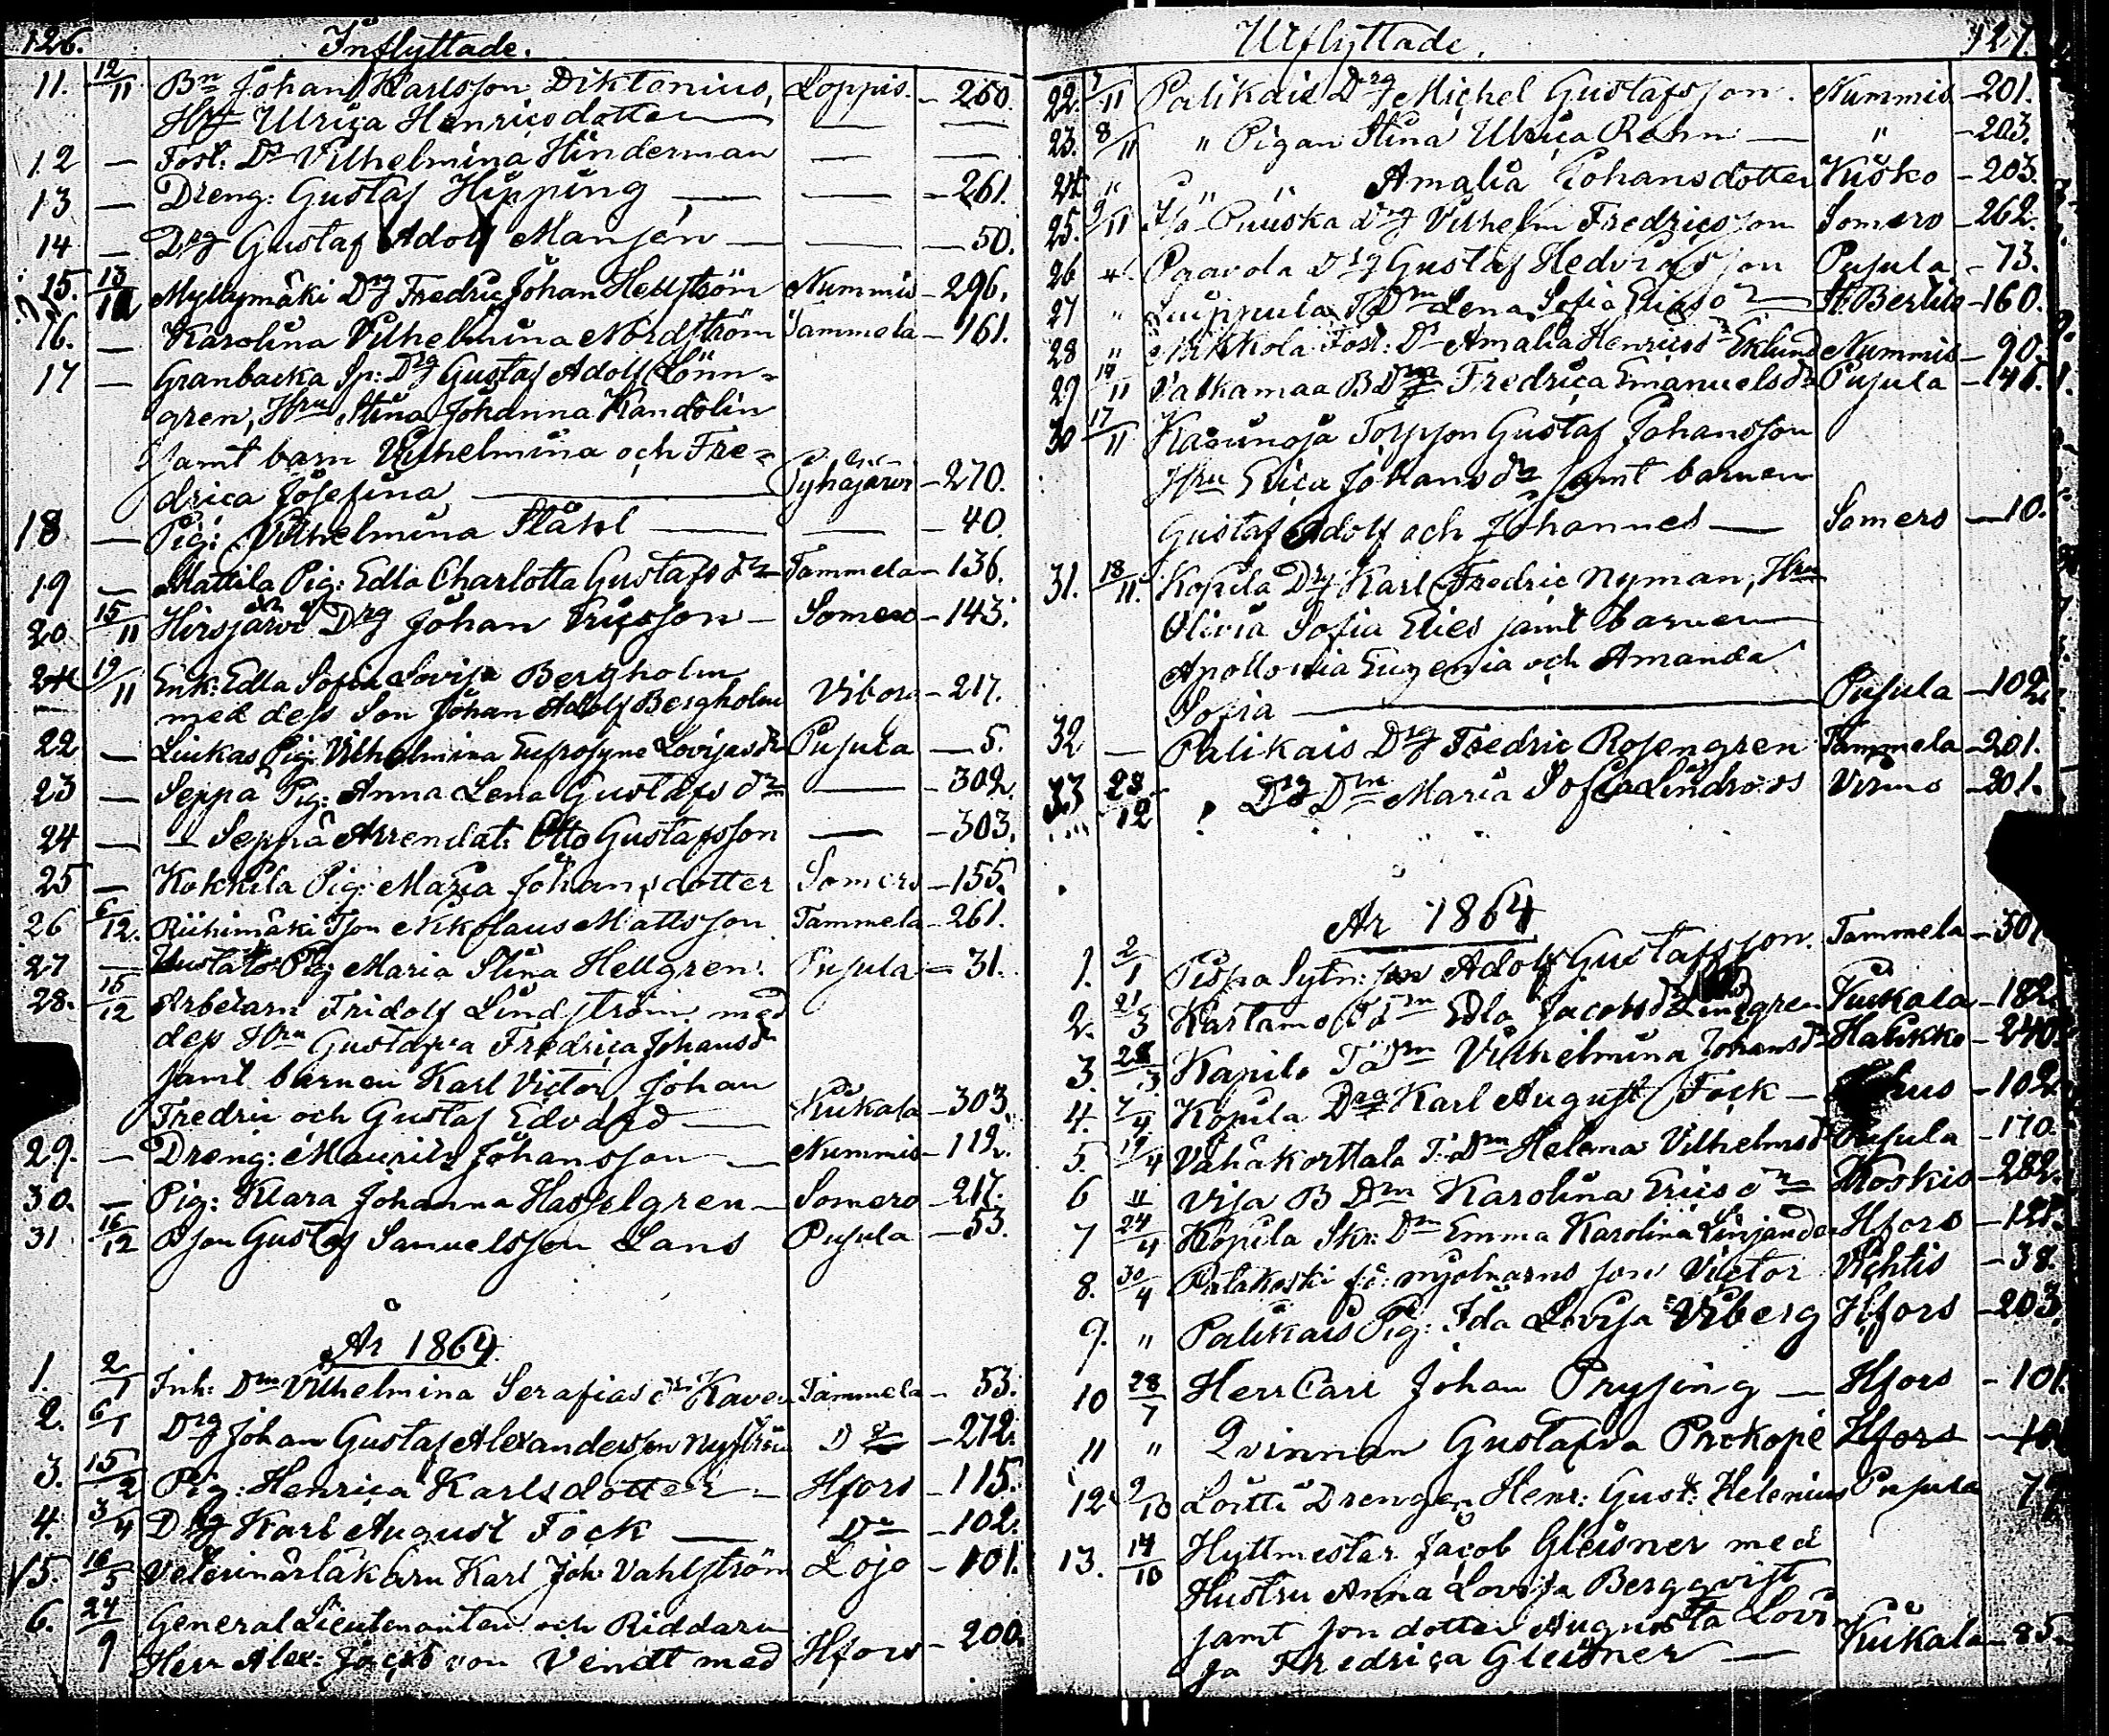 126.
Inflyttade.
11. 12/11 Bn Johan Karlsson Diktonius, Loppis - 260.
Hru Ulrica Henricsdotter — —
12 — Fost: Dr Vilhelmina Hinderman — —
13 — Dreng: Gustaf Hipping — — - 261.
14 — Drg Gustaf Adolf Mansén — — - 50.
15. 13/11 Myllymäki Drg Fredric Johan Hellström Nummis - 296.
16. — Karolina Vilhelmina Nordström Tammela - 161.
17 — Granbacka Sp: Drg Gustaf Adolf Lönn-
gren, Hru Stina Johanna Kandolin
samt barn Vilhelmina och Fre-
drica Josefina — Pyhäjärvi - 270.
18 — Pig: Vilhelmina Ståhl — — - 40.
19 — Mattila Pig: Edla Charlotta Gustafsdr Tammela - 136.
20 15/11 Hirsjärvi Drg Johan Ericsson - Somero - 143.
21 19/11 Enk: Edla Sofia Lovisa Bergholm
med dess Son Johan Adolf Bergholm Viborg - 217.
22 — Liukas Pig: Vilhelmina Eufrosyne Lovisasdr Pusula - 5.
23 — Seppä Pig: Anna Lena Gustafsdr — - 302.
24 — Seppä Arrendat: Otto Gustafsson — - 303.
25 — Kokkila Pig: Maria Johansdotter Somero - 155.
26 6/12. Riihimäki Tson Nikolaus Mattsson Tammela - 261.
27 — Pig: Maria Stina Hellgren Pusula - 31.
28. 15/12 Arbetarn Fridolf Lindström med
dess Hru Gustafva Fredrica Johansdr
samt barnen Karl Victor, Johan
Fredric och Gustaf Edvard — Kiikala - 303.
29. — Dreng: Maurits Johansson — Nummis - 112.
30. — Pig: Klara Johanna Hasselgren - Somero - 217.
31 16/12 Bson Gustaf Samuelsson Lans Pusula - 53.
År 1864.
1. 2/1 Inh: Dm Vilhelmina Serafiasdr Kaven Tammela - 53.
2. 6/1 Drg Johan Gustaf Alexandersson Nyström Do - 272.
3. 15/2 Pig: Henrica Karlsdotter - Hfors - 115.
4. 3/4 Drg Karl August Fock — Do - 102.
5. 16/5 Veterinärläkarn Karl Joh: Vahlström Lojo - 101.
6. 24/9 General Lieutenanten och Riddarn
Herr Alex: Jacob von Vendt med Hfors - 200.
Utflyttade.
127.
22. 7/11 Palikais Drg Michel Gustafsson. Nummis - 201.
23. 8/11 " Pigan Stina Ulrica Rehn — " - 203.
24 " " " Amalia Johansdotter Kisko - 203.
25. 9/11 Puiska Drg Vilhelm Fredricsson Somero - 262.
26 " Paavola Drg Gustaf Hedvigsson Pusula - 73.
27 " Dm Lena Sofia Eliasdr — St. Bertils - 160.
28 " Fost: Dr Amalia Henricsdr Eklund Nummis - 90.
29 14/11 Valkamaa B Dm Fredrica Emanuelsdr Pusula - 141.
30 17/11 Kaunoja Torpson Gustaf Johansson
Hru Erica Johansdr samt barnen
Gustaf Adolf och Johannes — Somero - 10.
31. 18/11. Kopila Drg Karl Fredric Nyman, Hru
Olivia Sofia Elies samt barnen
Apollonia Eugenia och Amanda
Sofia — Pusula - 102.
32 — Palikais Drg Fredric Rosengren Tammela - 201.
33 28/12 " Drg Dm Maria Sofia Lindroos Virmo - 201.
År 1864
1. 2/1 Pispa Sytn: son Adolf Gustafsson. Tammela - 301
2. 21/3 Kartamo Edla Jacobsdr Lindgren Kiikala - 182.
3. 28/3 Kapila Vilhelmina Johansdr Halikko - 240.
4. 7/4 Kopila Drg Karl August Fock — - 102.
5. 19/4 Vähäkorttala T: Dm Helena Vilhelmsdr Pusula - 170.
6 " Visa B Dm Karolina Ericsdr Koskis - 282.
7 24/4 Kopila Skr: Dm Emma Karolina Hfors - 121.
8. 30/4 Palakoski fö: mjölnarns son Victor Vichtis - 38.
9. " Palikais Pig: Ida Lovisa Viberg Hfors - 203.
10 28/7 Herr Carl Johan Pryssing — Hfors - 101.
11 " Qvinnan Gustafva Prokopé Hfors - 101
12 9/10 Loitti Drengen Henr: Gust: Helenius Pusula 77
13. 14/10 Hyttmestar Jacob Gleisner med
Hustru Anna Lovisa Bergqvist
samt son dotter Augusta Lovi-
sa Fredrica Gleisner — Kiikala - 85.